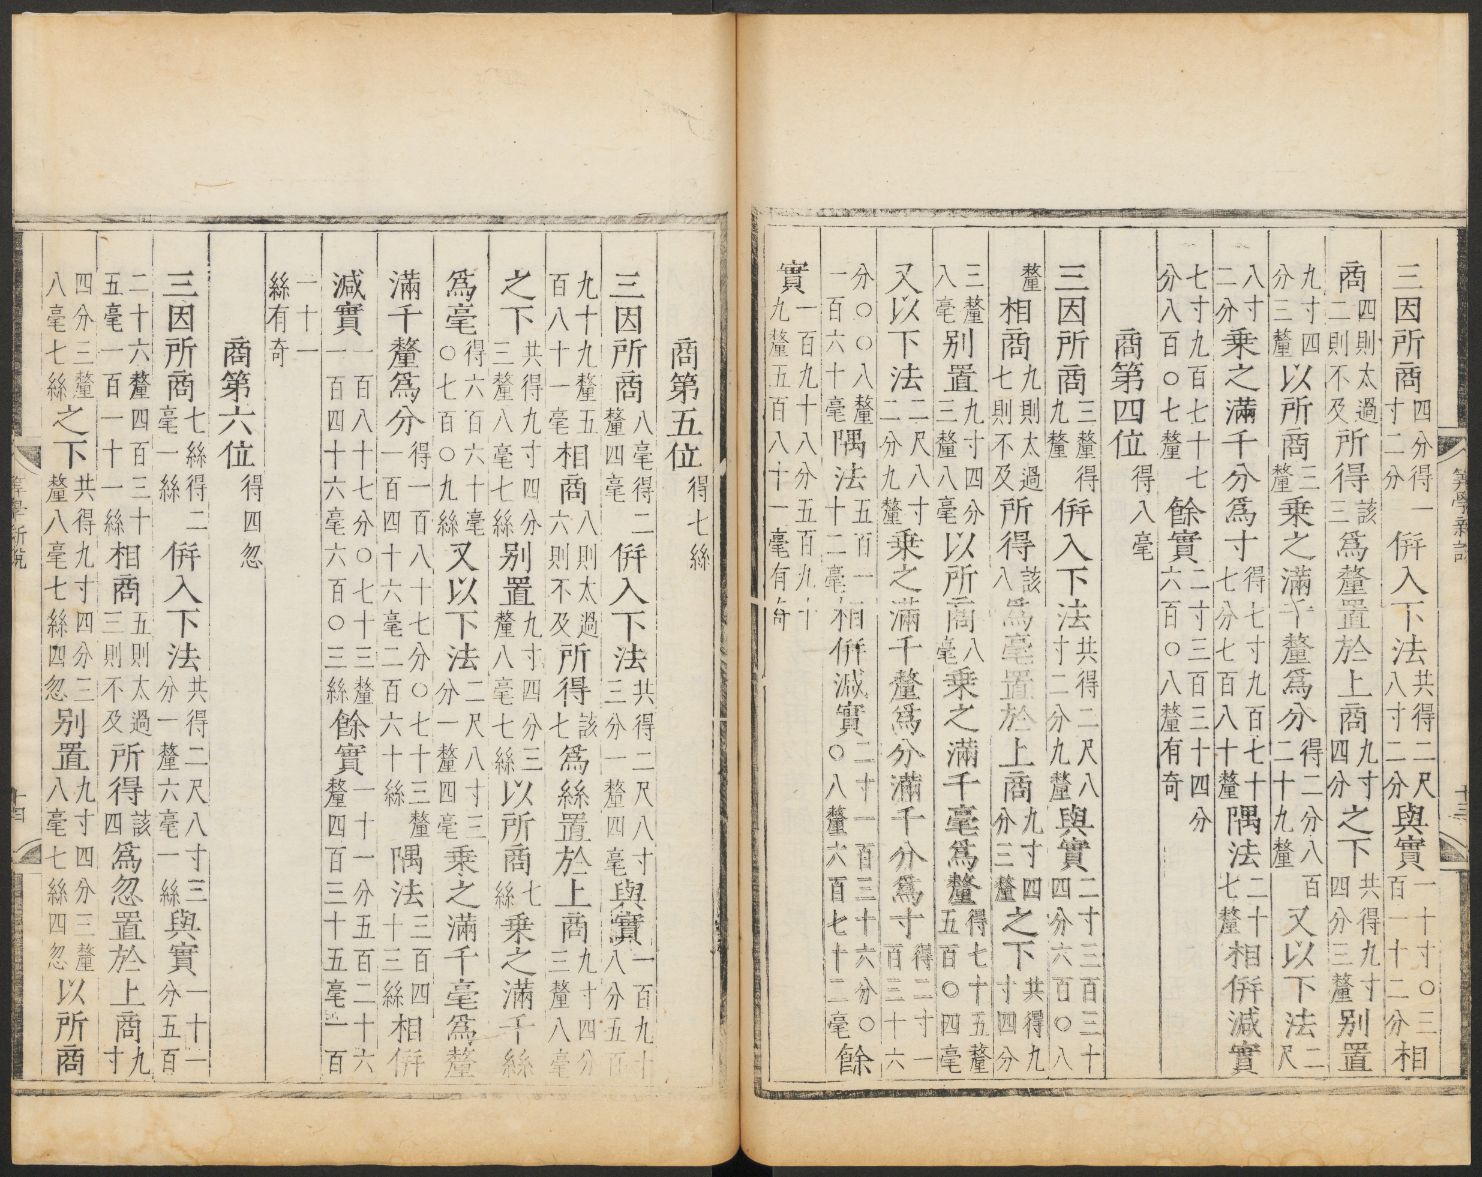 三因所商四分得一寸二分併入下法共得二尺八寸二分與實一十寸〇三百一十二分相
商四則太過二則不及所得該三爲釐置於上商九寸四分之下共得九寸四分三釐别置
九寸四分三釐以所商三釐乗之滿千釐爲分得二分八百二十九釐又以下法二尺
八寸二分乗之滿千分爲寸得七寸九百七十七分七百八十釐隅法二十七釐相併減實
七寸九百七十七分八百〇七釐餘實二寸三百三十四分六百〇八釐有奇
商第四位得八毫
三因所商三釐得九釐併入下法共得二尺八寸二分九釐與實二寸三百三十四分六百〇八
釐相商九則太過七則不及所得該八爲毫置於上商九寸四分三釐之下共得九寸四分
三釐八毫别置九寸四分三釐八毫以所商八毫乗之滿千毫爲釐得七十五釐五百〇四毫
又以下法二尺八寸二分九釐乗之滿千釐爲分滿千分爲寸得二寸一百三十六
分〇〇八釐一百六十毫隅法五百一十二毫相併減實二寸一百三十六分〇〇八釐六百七十二毫餘
實一百九十八分五百九十九釐五百八十一毫有奇
商第五位得七絲
三因所商八毫得二釐四毫併入下法共得二尺八寸三分一釐四毫與實一百九十八分五百
九十九釐五百八十一毫相商八則太過六則不及所得該七爲絲置於上商九寸四分三釐八毫
之下共得九寸四分三釐八毫七絲别置九寸四分三釐八毫七絲以所商七絲乗之滿千絲
爲毫得六百六十毫〇七百〇九絲又以下法二尺八寸三分一釐四毫乗之滿千毫爲釐
滿千釐爲分得一百八十七分〇七十三釐一百四十六毫二百六十絲隅法三百四十三絲相併
減實一百八十七分〇七十三釐一百四十六毫六百〇三絲餘實一十一分五百二十六釐四百三十五毫一百
一十一絲有奇
商第六位得四忽
三因所商七絲得二毫一絲併入下法共得二尺八寸三分一釐六毫一絲與實一十一分五百
二十六釐四百三十五毫一百一十一絲相商五則太過三則不及所得該四爲忽置於上商九寸
四分三釐八毫七絲之下共得九寸四分三釐八毫七絲四忽别置九寸四分三釐八毫七絲四忽以所商